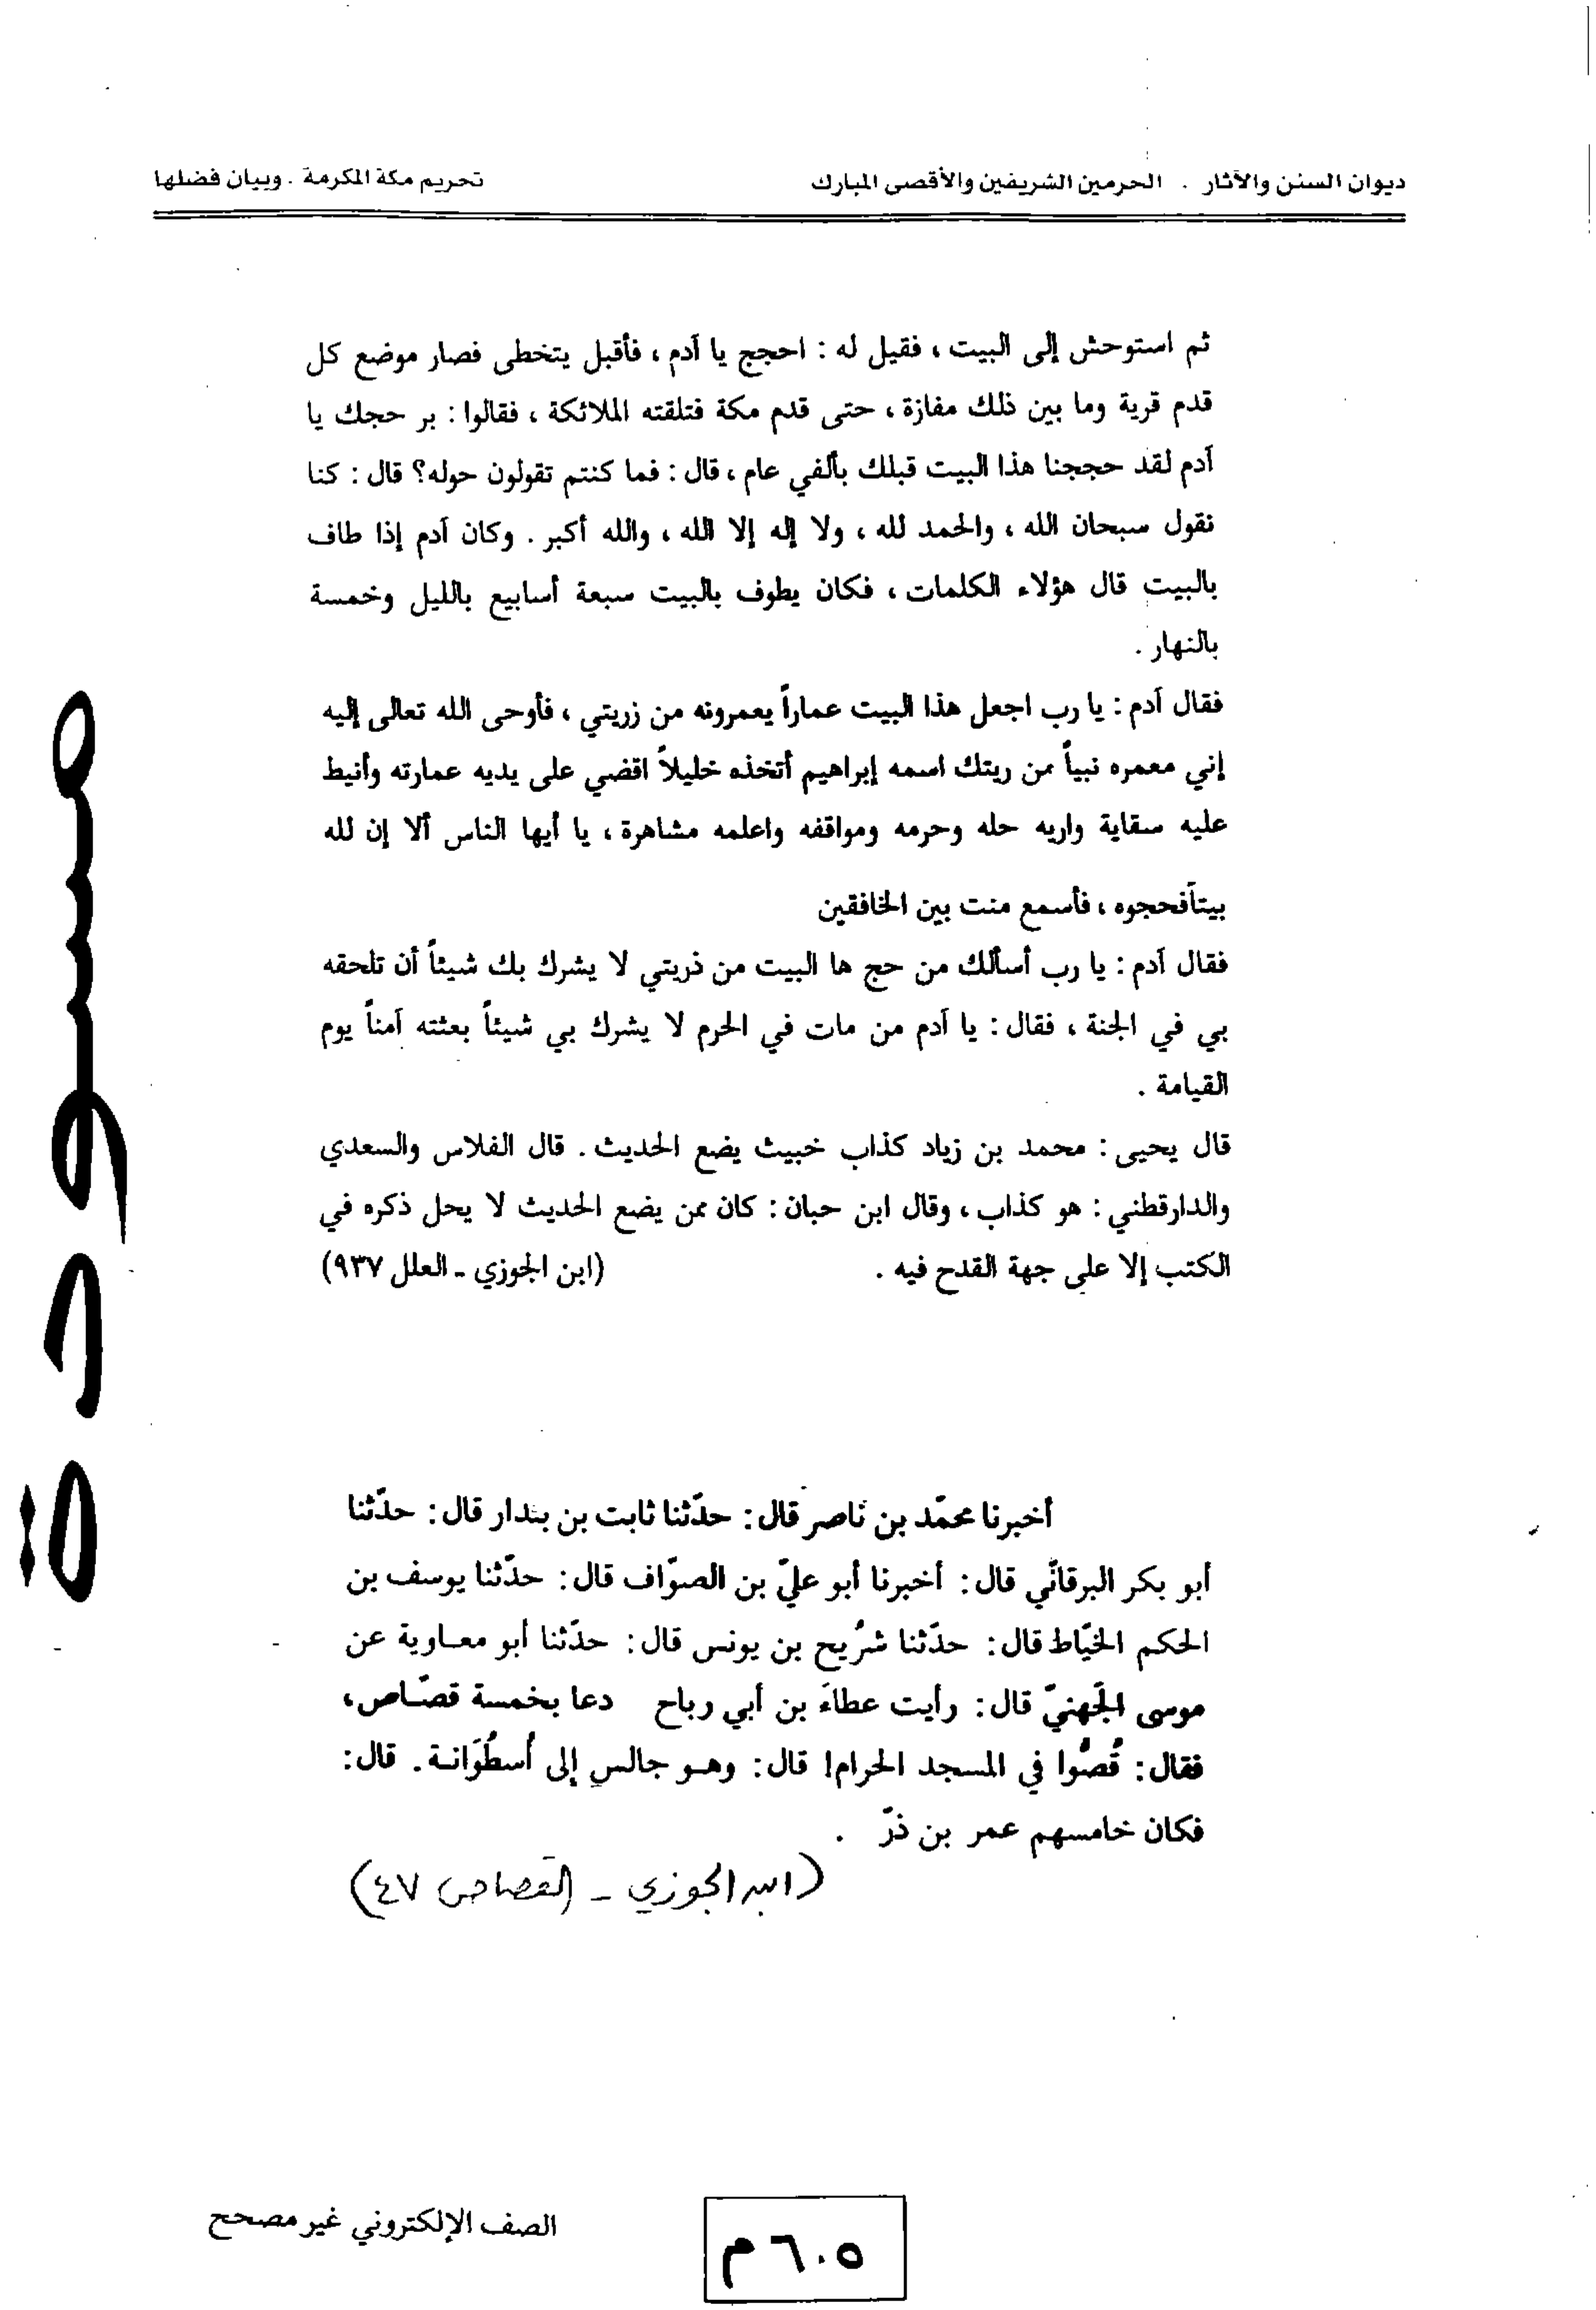 ديوان السنن والآثار . الحرمين الشريفين والأقصى المبارك
تحريم مكة المكرمة . وبيان فضلها
ثم استوحش إلى البيت ، فقيل له : احجج يا آدم ، فأقبل يتخطى فصار موضع كل
قدم قرية وما بين ذلك مفازة ، حتى قدم مكة فتلقته الملائكة ، فقالوا : بر حجك يا
آدم لقد حججنا هذا البيت قبلك بألفي عام ، قال : فما كنتم تقولون حوله؟ قال : كنا
نقول سبحان الله ، والحمد لله ، ولا إله إلا الله ، والله أكبر . وكان آدم إذا طاف
بالبيت قال هؤلاء الكلمات ، فكان يطوف بالبيت سبعة أسابيع بالليل وخمسة
بالنهار .
فقال آدم : يا رب اجعل هذا البيت عماراً يعمرونه من زريتي ، فأوحى الله تعالى إليه
إني معمره نبياً من ريتك اسمه إبراهيم أتخذه خليلاً اقضي على يديه عمارته وأنيط
عليه سقاية واريه حله وحرمه ومواقفه واعلمه مشاهرة ، يا أيها الناس ألا إن لله
بيتاًفحجوه ، فأسمع منت بين الخافقين
فقال آدم : يا رب أسألك من حج ها البيت من ذريتي لا يشرك بك شيئاً أن تلحقه
بي في الجنة ، فقال : يا آدم من مات في الحرم لا يشرك بي شيئاً بعثته آمناً يوم
القيامة .
قال يحيى : محمد بن زياد كذاب خبيث يضع الحديث . قال الفلاس والسعدي
والدارقطني : هو كذاب ، وقال ابن حبان : كان ممن يضع الحديث لا يحل ذكره في
الكتب إلا على جهة القدح فيه . (ابن الجوزي ـ العلل ٩٣٧)
أخبرنا محمّد بن ناصر قال : حدّثنا ثابت بن بندار قال : حدّثنا
أبو بكر البرقانّي قال : أخبرنا أبو عليّ بن الصوّاف قال : حدّثنا يوسف بن
الحكم الخيّاط قال : حدّثنا شُريح بن يونس قال : حدّثنا أبو معـاوية عن
موسى الجَهنيّ قال : رأيت عطاءَ بن أبي رباح دعا بخمسة قصّـاص،
فقال : قُصُّوا في المسجد الحرام! قال : وهـو جالس إلى أُسطُوَانـة . قال :
فكان خامسهم عمر بن ذرّ .
(ابن الجوزي - القصاص ٤٧)
مسودة
الصف الإلكتروني غير مصحح
٦٠٥ م